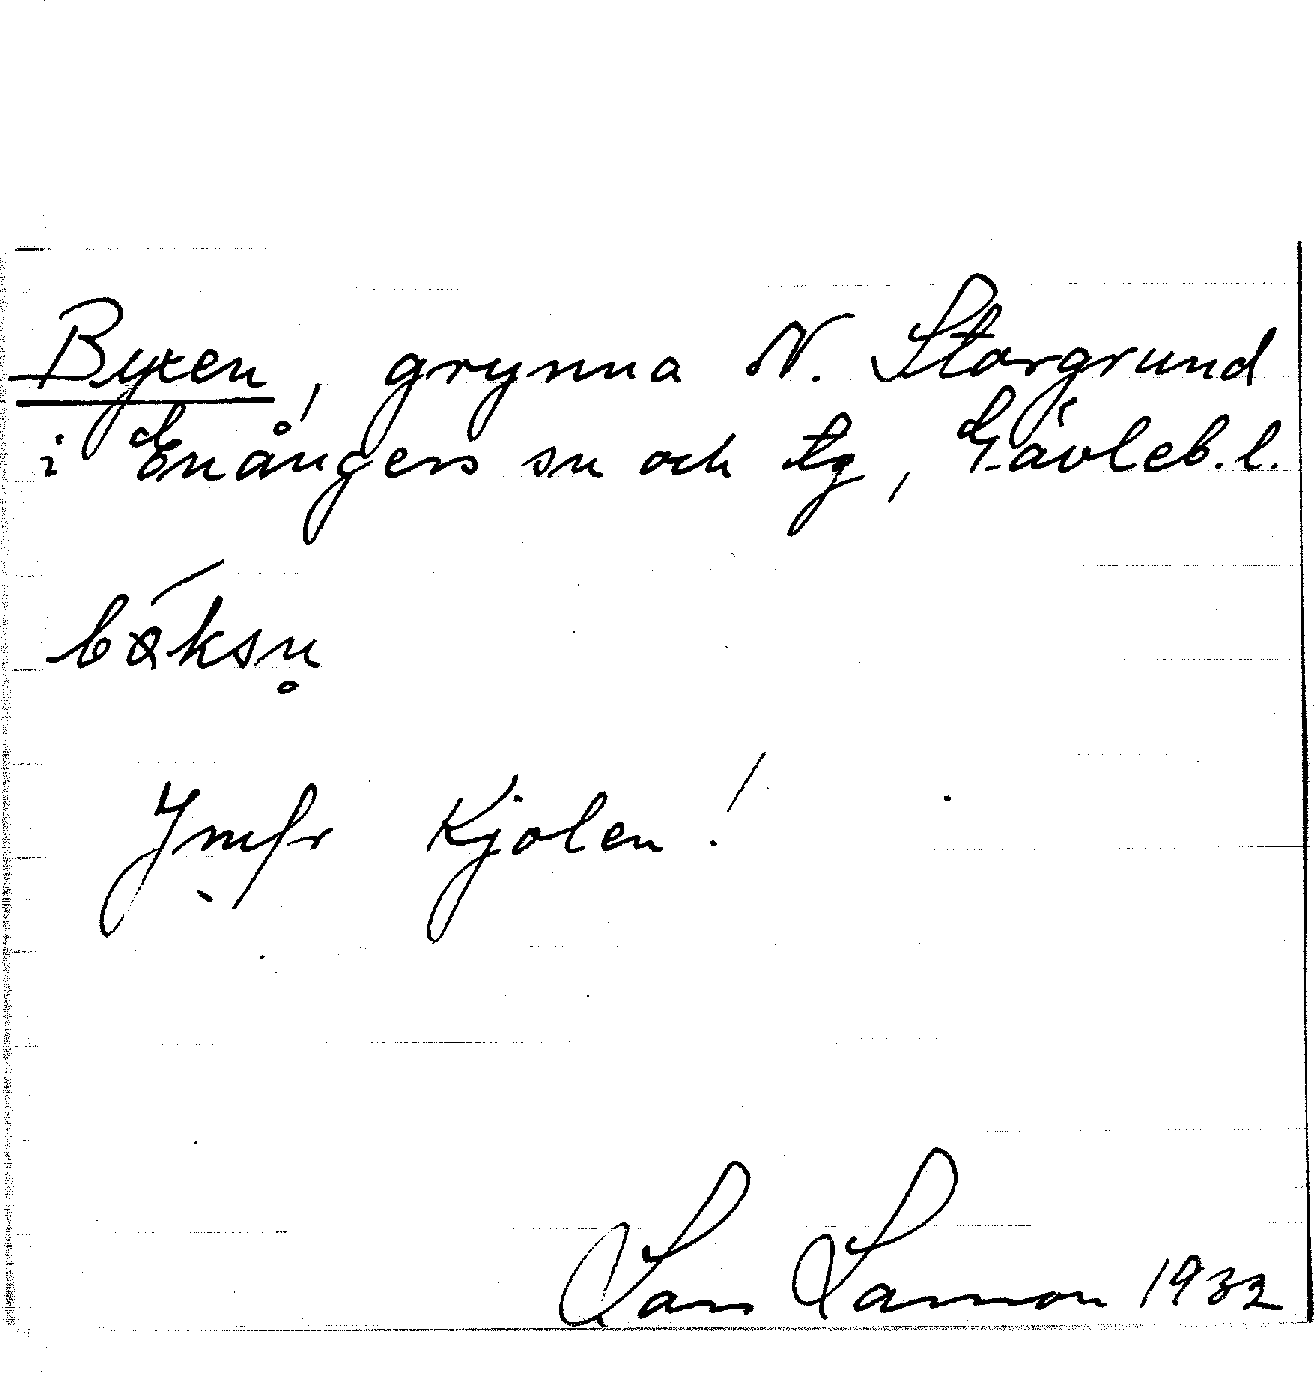 Byxen, grynna N. Storgrund
i Enångers sn och tg, Gävleb. l.
bǿksn̥
Jmfr Kjolen!
Lars Larsson 1932